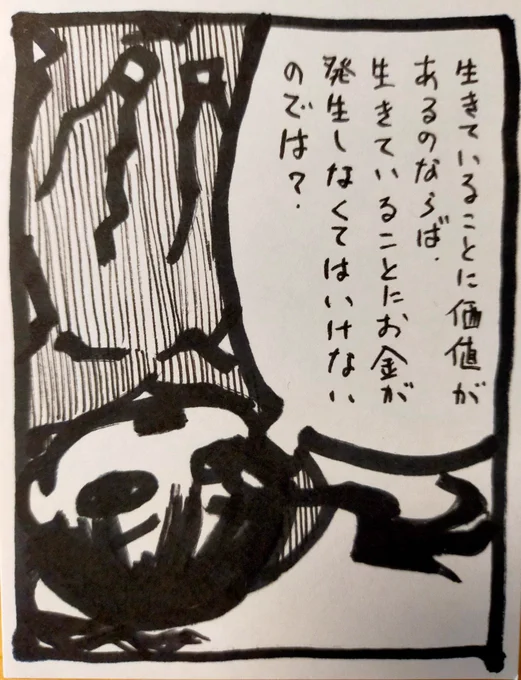 生きていることに価値が
あるのならば.
生きていることにお金が
発生しなくてはいけない
のでは？.